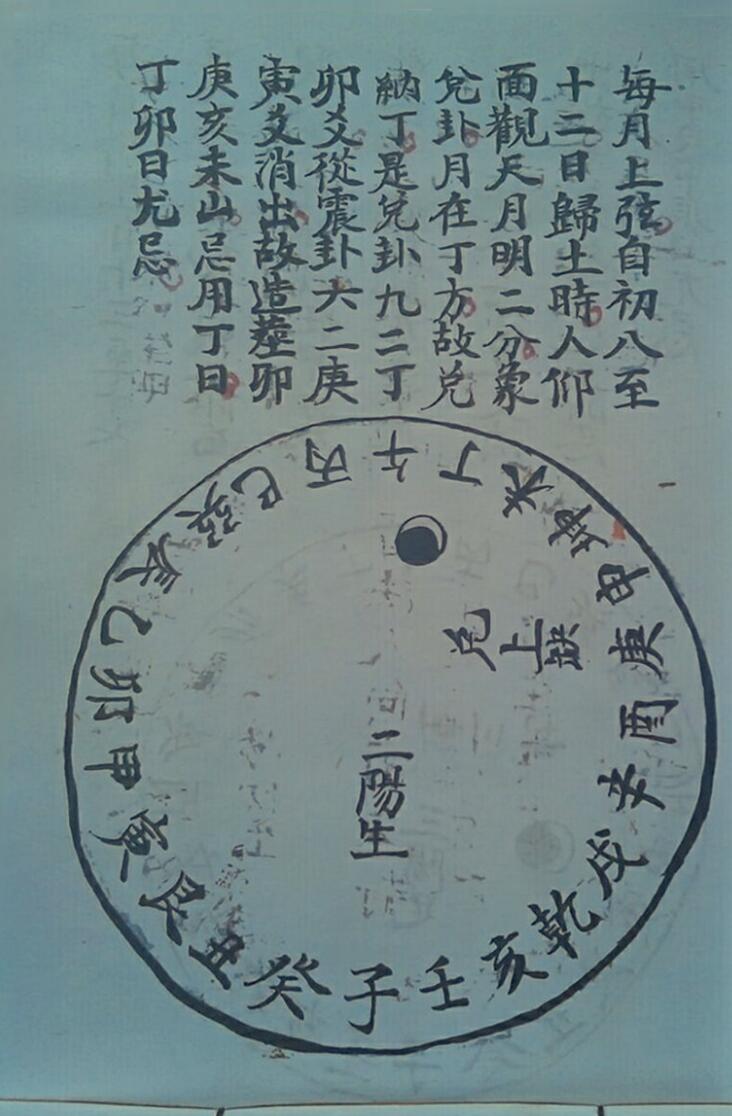 每月上弦自初八至
十二日歸土時人仰
面觀天月明二分象
兌卦月在丁方故兌
納丁是兌卦九二丁
卯爻從震卦六二庚
寅爻消出故造塟卯
庚亥未山忌用丁日
丁卯日尤忌
午丁未坤申庚酉辛戌乾亥壬子癸丑艮寅甲卯乙辰巽巳丙
兌上缺
二陽生